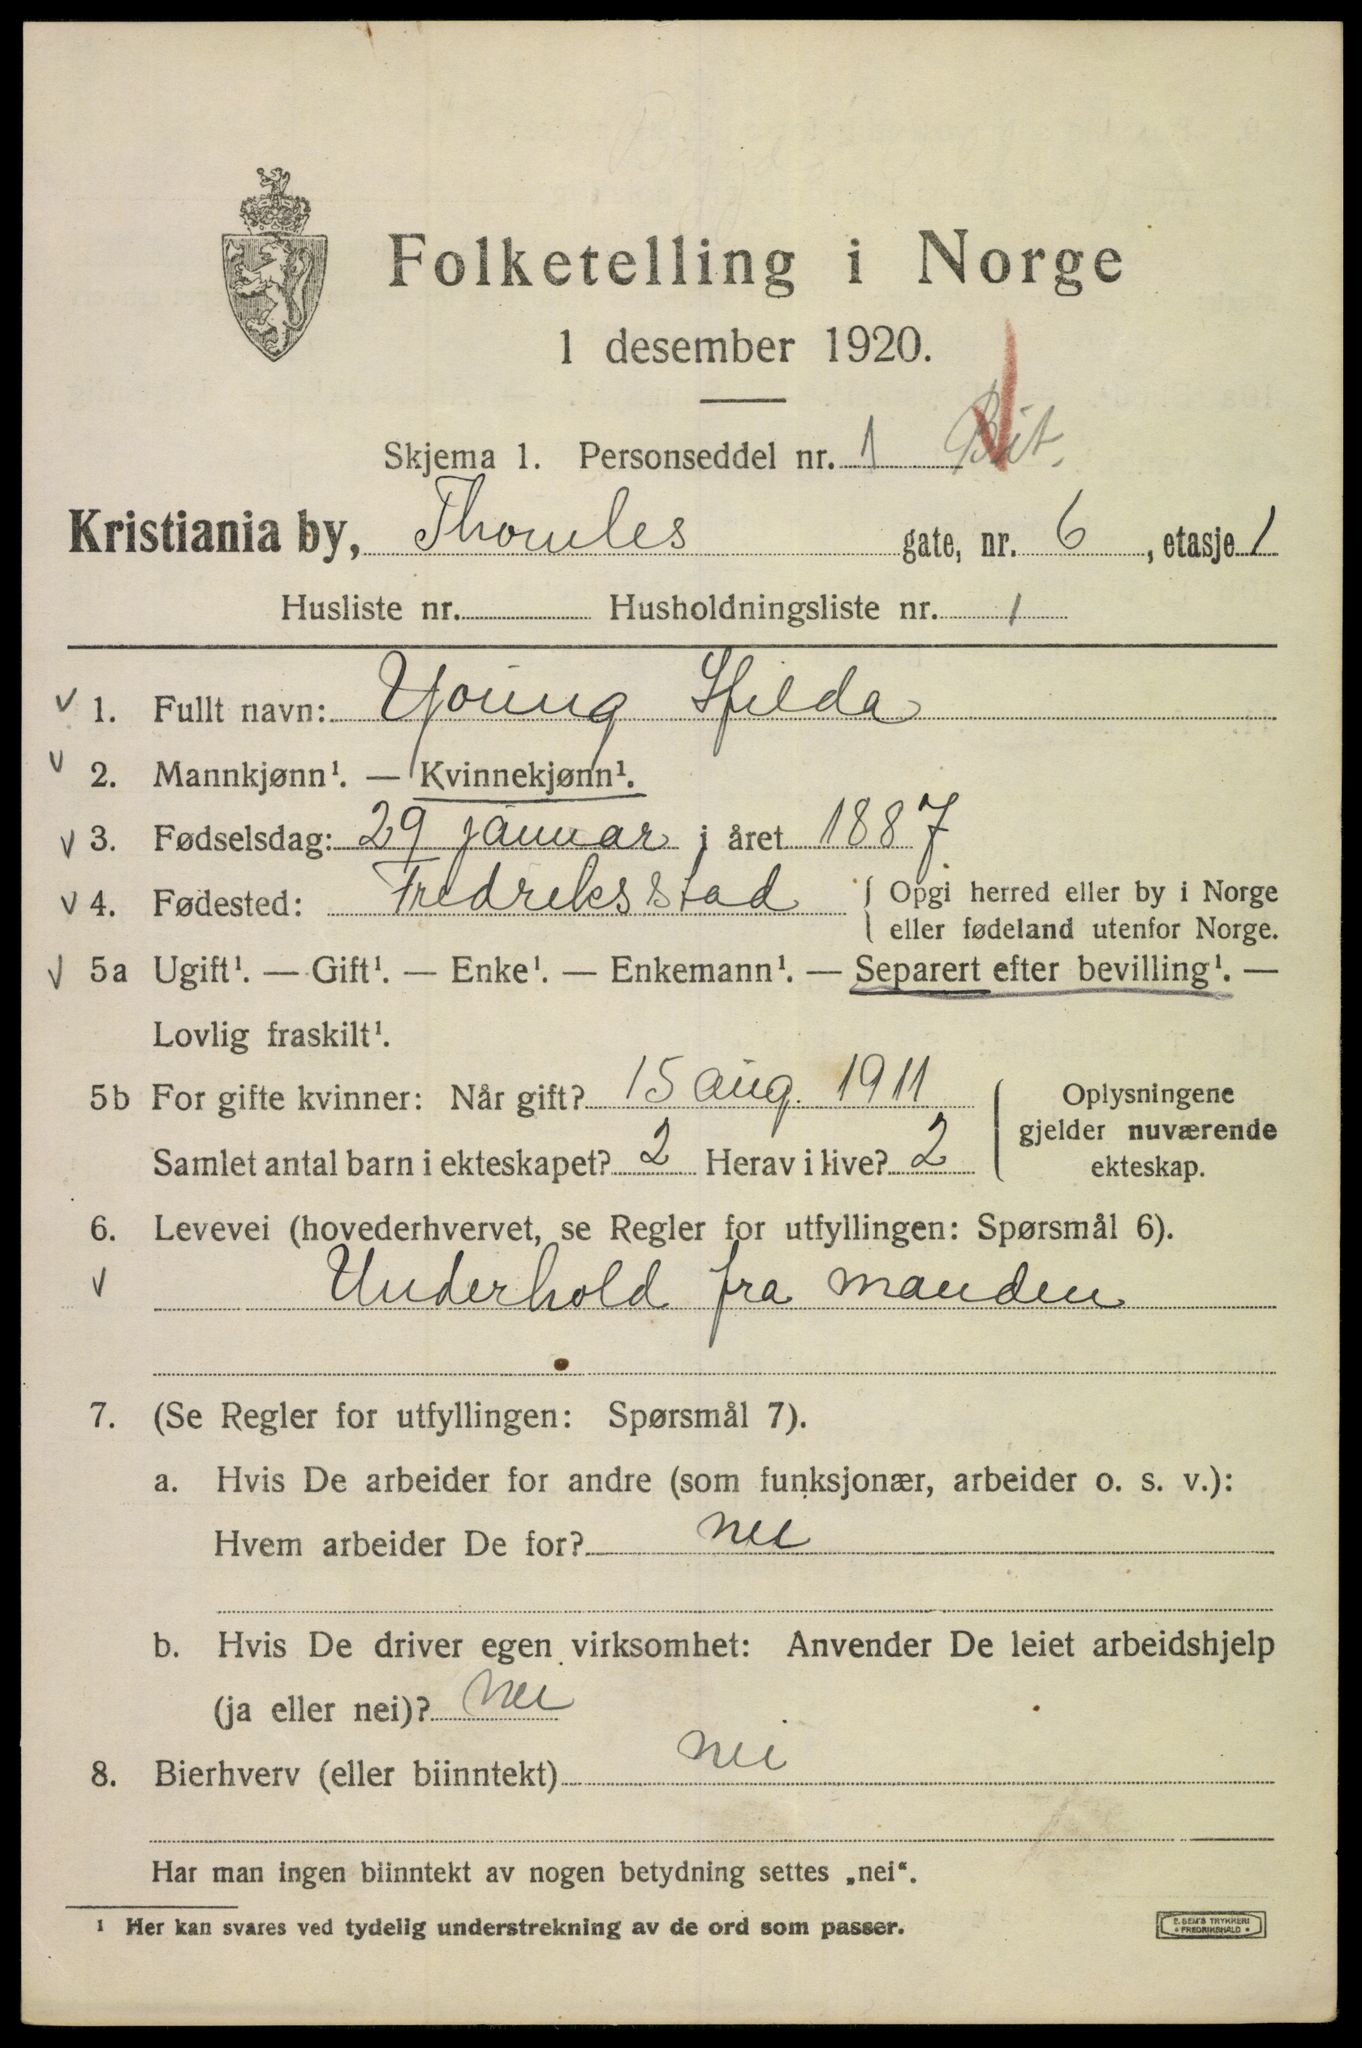 Folketelling i Norge
1 desember 1920.
Skjema 1. Personseddel nr. 1
Kristiania by, Thomles gate, nr. 6, etasje 1
Husliste nr. Husholdningsliste nr. 1
1. Fullt navn: Young Hilda
2. Mannkjønn¹. — Kvinnekjønn¹.
3. Fødselsdag: 29 januar i året 1887
4. Fødested: Fredriksstad { Opgi herred eller by i Norge
eller fødeland utenfor Norge.
5a Ugift¹. — Gift¹. — Enke¹. — Enkemann¹. — Separert efter bevilling¹. —
Lovlig fraskilt¹.
5b For gifte kvinner: Når gift? 15 aug. 1911
Samlet antal barn i ekteskapet? 2 Herav i live? 2
Oplysningene
gjelder nuværende
ekteskap.
6. Levevei (hovederhvervet, se Regler for utfyllingen: Spørsmål 6).
Underhold fra manden
7. (Se Regler for utfyllingen: Spørsmål 7).
a. Hvis De arbeider for andre (som funksjonær, arbeider o. s. v.):
Hvem arbeider De for? nei
b. Hvis De driver egen virksomhet: Anvender De leiet arbeidshjelp
(ja eller nei)? nei
8. Bierhverv (eller biinntekt) nei
Har man ingen biinntekt av nogen betydning settes „nei“.
¹ Her kan svares ved tydelig understrekning av de ord som passer.
E. SEM'S TRYKKERI
FREDRIKSHALD